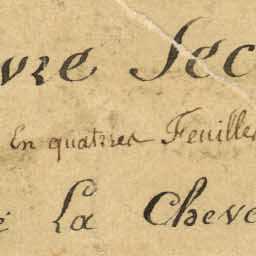 vre Sec
En quatres Feuille
é La Cheve